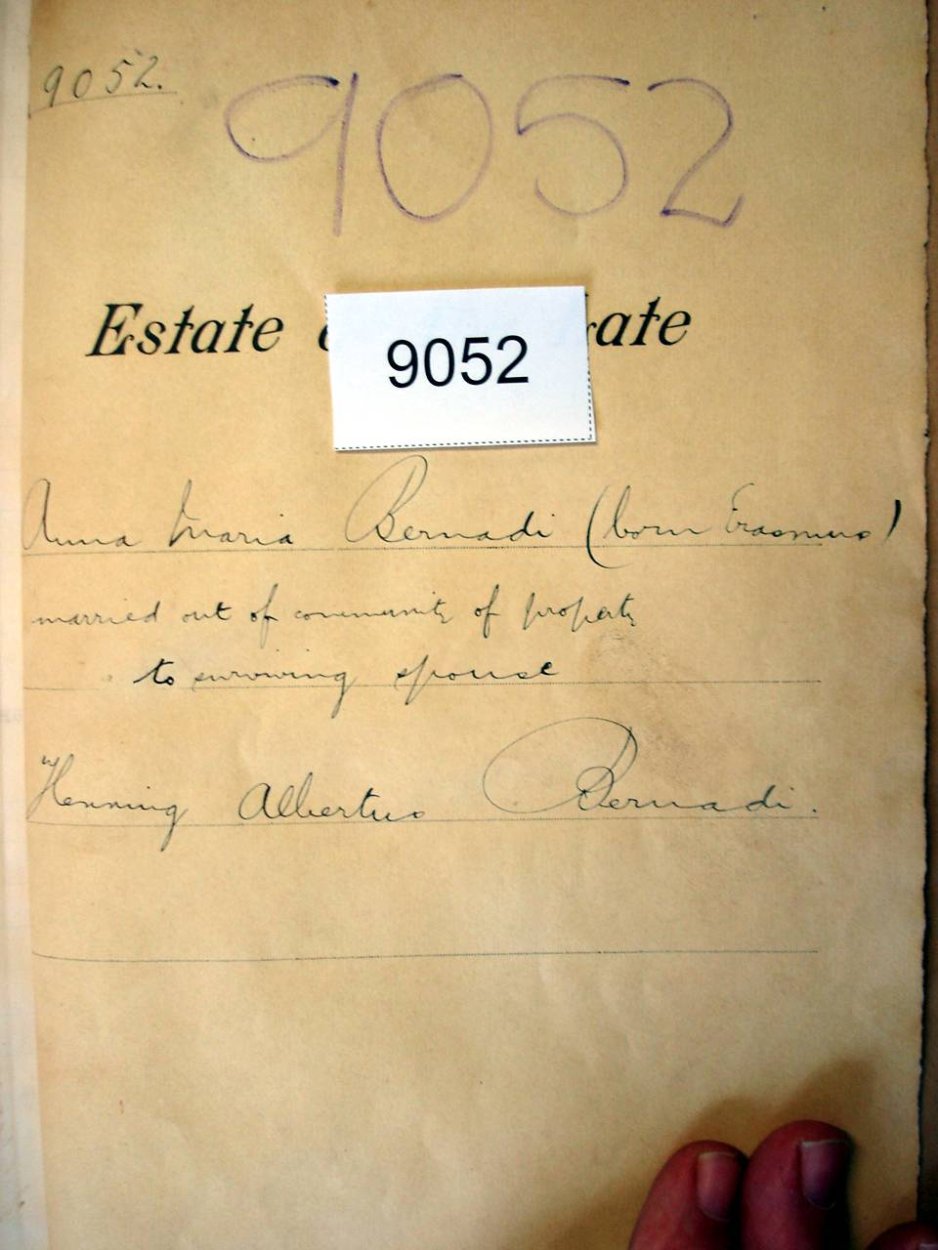 9052.
9052
Estate
9052
Anna Maria Bernadi (born Erasmus)
married out of community of property
to surviving spouse
Henning Albertus Bernadi.